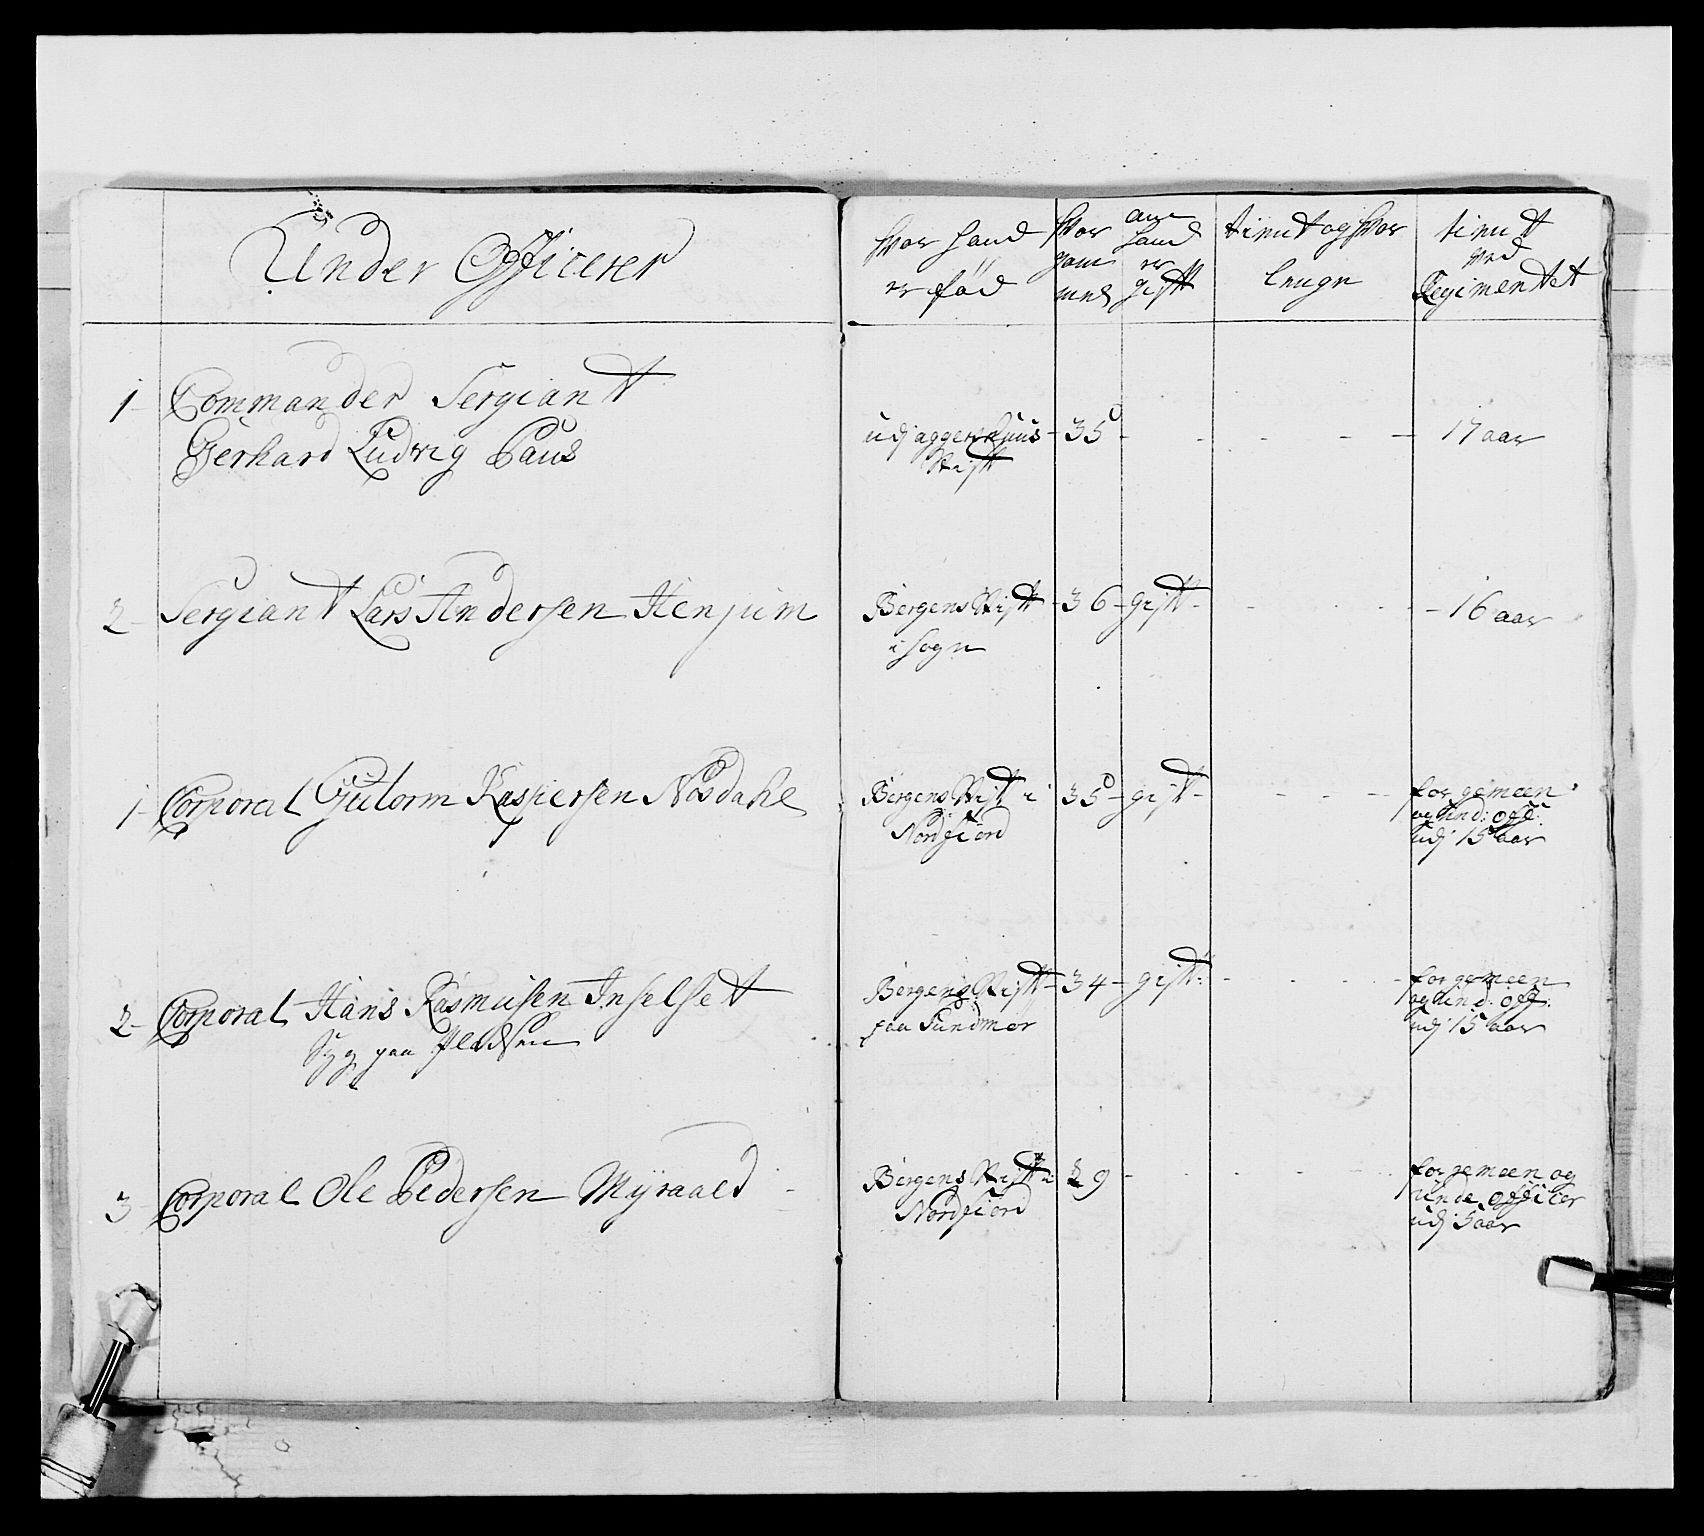 Under Officerer
hvor hand
er fød
hvor
gam
mel
om
hand
er
gift
tient og hvor
lenge
tient
ved
Regimentet
1 Commander Sergiant
Gerhard Ludvig Paus
udj aggershuus
Stift
35
17 aar
2 Sergiant Lars Andersen Henjum
Bergens Stift
i Sogn
36 gift
16 aar
1 Corporal Gutorm Kaspersen Nosdahl
Bergens Stift i
Nordfiord
35 gift
for gemeen
og und: off:
udj 15 aar
2 Corporal Hans Rasmusen Inselset
Syg paa
Bergens Stift
paa Sundmør
34 gift
for gemeen
og und: off:
udj 15 aar
3 Corporal Ole Pedersen Myraaed
Bergens Stift i
Nordfiord
29
for gemeen og
unde officier
udj 5 aar